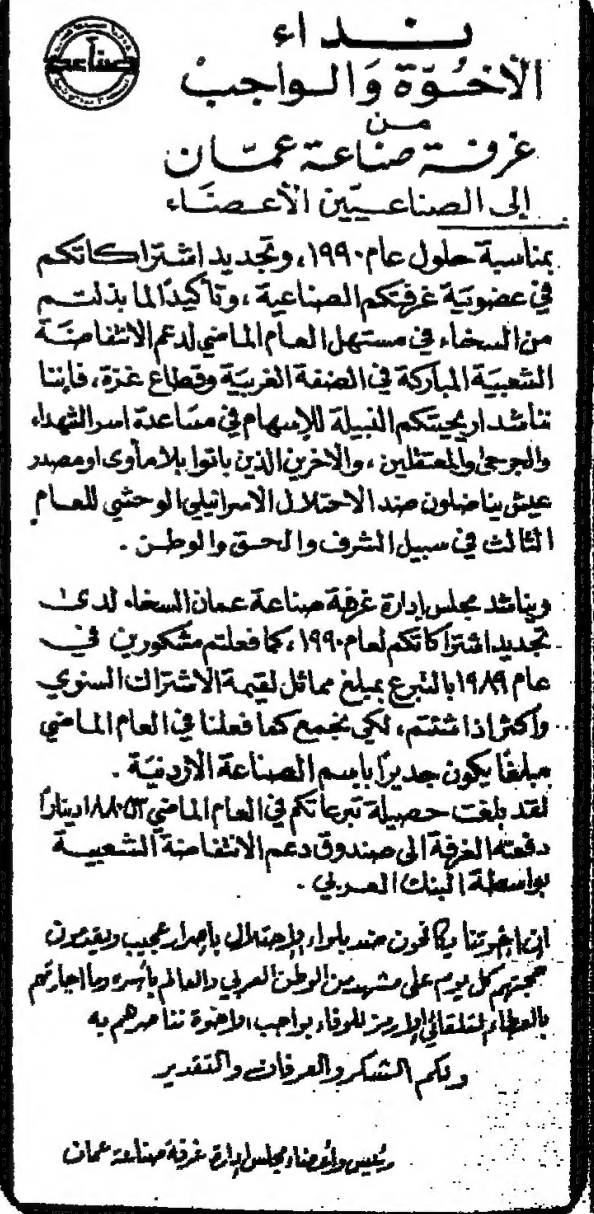 صناعة
نداء
الأخوّة وَالواجبْ
من
غرفة صناعة عمّان
إلى الصناعيّين الأعضاء
بمناسبة حلول عام ١٩٩٠، وتجديد اشتراكاتكم
في عضويّة غرفتكم الصناعية، وتأكيدًا لما بذلتم
من السخاء في مستهل العام الماضي لدعم الانتفاضة
الشعبيّة المباركة في الضفة الغربيّة وقطاع غزة، فإننا
نناشد اريحيتكم النبيلة للإسهام في مساعدة اسر الشهداء
والجرحى والمعتقلين، والآخرين الذين باتوا بلا مأوى او مصدر
عيش يناضلون ضد الاحتلال الاسرائيلي الوحشي للعام
الثالث في سبيل الشرف والحق والوطن.
ويناشد مجلس إدارة غرفة صناعة عمان السخاء لدى
تجديد اشتراكاتكم لعام ١٩٩٠، كما فعلتم مشكورين في
عام ١٩٨٩ بالتبرع بمبلغ مماثل لقيمة الاشتراك السنوي
وأكثر اذا شئتم، لكي نجمع كما فعلنا في العام الماضي
مبلغًا يكون جديرًا باسم الصناعة الاردنيّة.
لقد بلغت حصيلة تبرعاتكم في العام الماضي دينارًا
دفعته الغرفة الى صندوق دعم الانتفاضة الشعبية
بواسطة البنك العربي.
إن إخوتنا يكافحون ضد بلواء الإحتلال بإصرار عجيب ويقدمون
كل يوم على مشهد من الوطن العربي والعالم بأسره وما
بالعطاء التلقائي إلا رمز للوفاء بواجب الاخوة نناصرهم به
ولكم الشكر والعرفان والتقدير
رئيس وأعضاء مجلس إدارة غرفة صناعة عمان